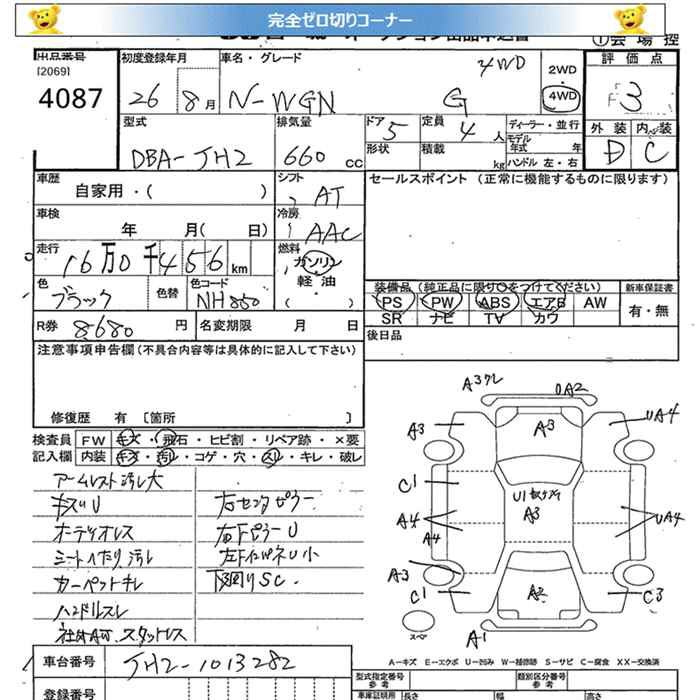 完全ゼロ切りコーナー
出品番号 初度登録年月 車名・グレード 4WD 2WD・4WD 評価点
[2069]
4087 26 8月 N-WGN G 3
型式 排気量 ドア 5 定員 4人 ディーラー・並行 外装 内装
DBA-JH2 660cc 形状 積載 kg モデル年式 年 ハンドル 左・右 D C
車歴 自家用・( ) シフト AT セールスポイント (正常に機能するものに限ります)
車検 年 月( 日) 冷房 AAC
走行 16万0千456km 燃料 ガソリン 軽・油 ( )
色 ブラック 色替 色コード NH850
装備品(純正品に限り○をつけてください) 新車保証書
PS PW ABS エアB AW 有・無
SR ナビ TV カワ
R券 8680円 名変期限 月 日 後日品
注意事項申告欄(不具合内容等は具体的に記入して下さい)
修復歴 有 〔箇所 〕
検査員 FW キズ・飛石・ヒビ割・リペア跡・×要
記入欄 内装 キズ・汚レ・コゲ・穴・スレ・キレ・破レ
アームレスト汚レ大
キズU 右センタピラー
オーディオレス 右下ピラーU
シートヘたり 汚レ 左下インパネU小
カーペットキレ 下廻りSC.
ハンドルスレ
社外AW.スタッドレス
A3ワレ UA2
A3 A3 UA4
C1 U1
A3
A4 UA4
A4
A3
C1 A2 C3
A1
スペア
A-キズ E-エクボ U-凹み W-補修跡 S-サビ C-腐食 XX-交換済
車台番号 JH2-1013282
型式指定番号 参考 類別区分番号 参考
登録番号 車庫証明用 長さ 幅 高さ